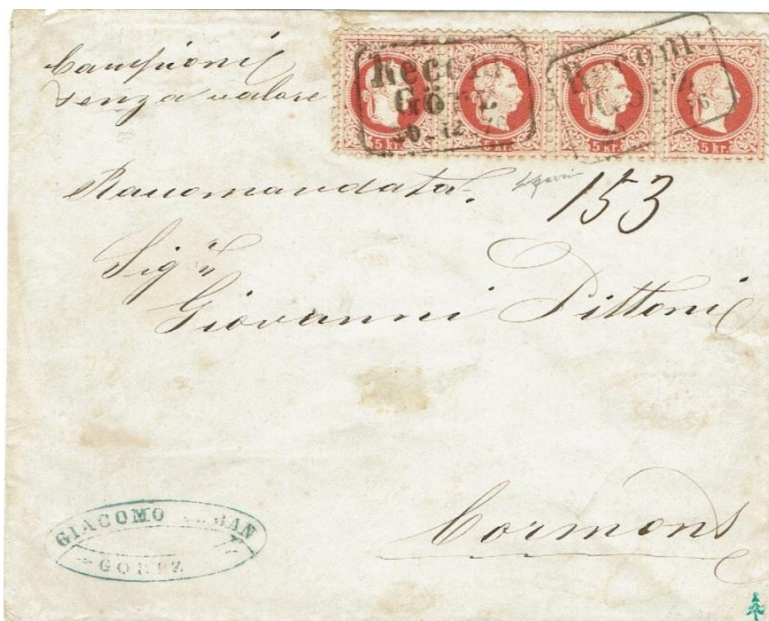 Campioni
senza valore
Recom.
Görz
Recom.
5 kr.
5 kr.
5 kr.
5 kr.
Raccomandata. 153
Sigr
Giovanni Pittoni
Cormons
GIACOMO
GORIZ